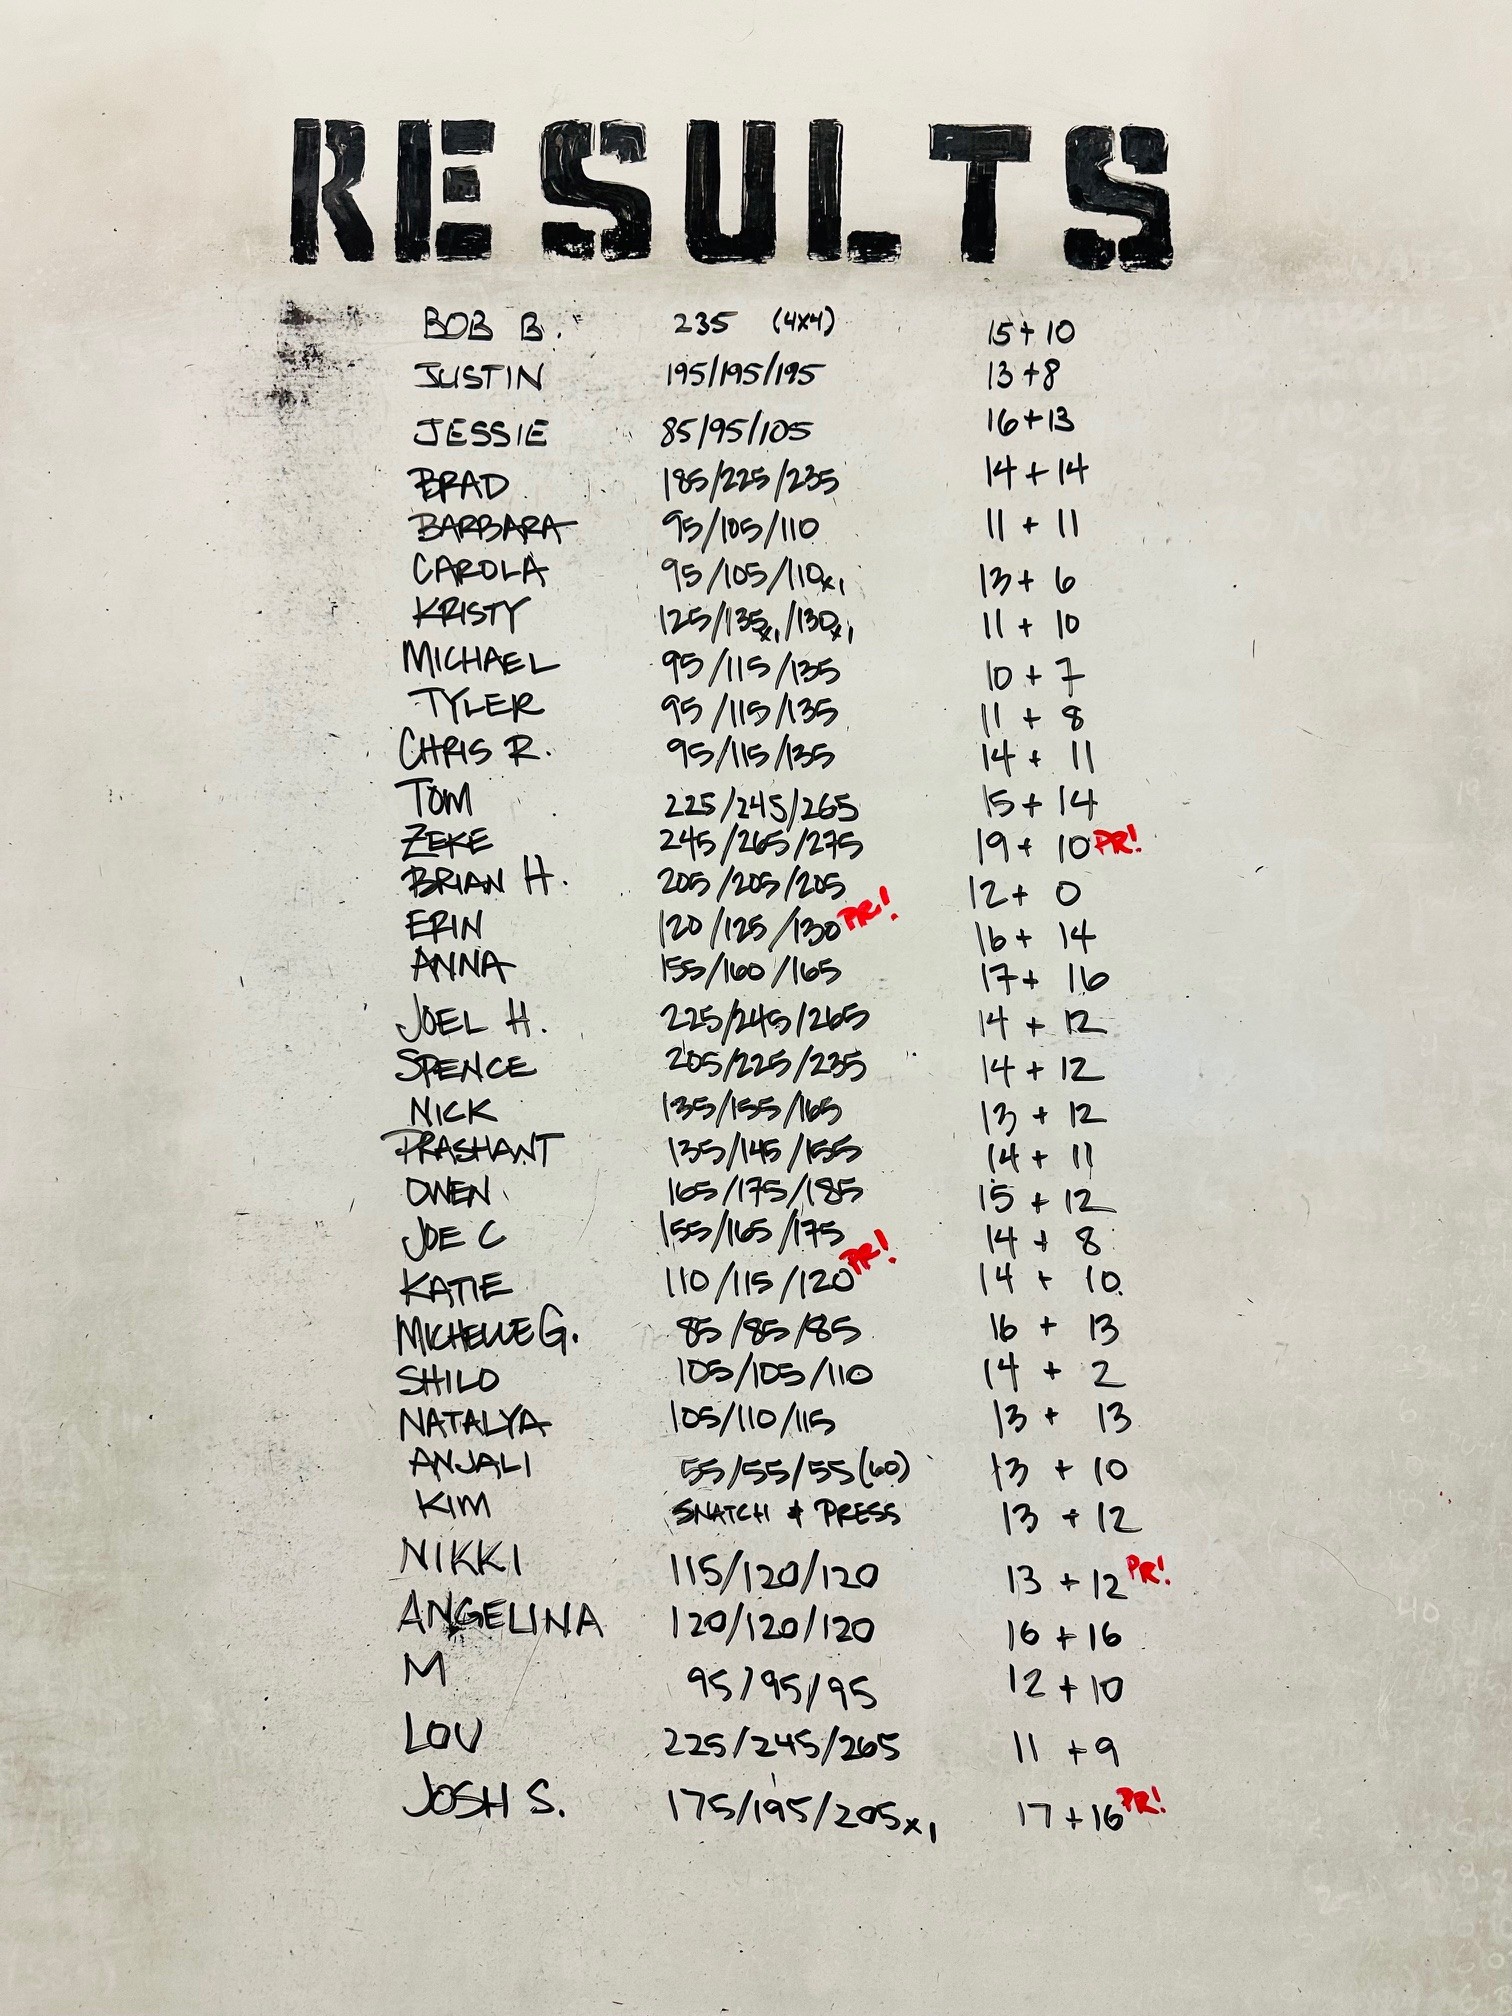 RESULTS
BOB B. 235 (4x4) 15+10
JUSTIN 195/195/195 13+8
JESSIE 85/95/105 16+13
BRAD 185/225/235 14+14
BARBARA 95/105/110 11+11
CAROLA 95/105/110x1 13+6
KRISTY 125/135x1/130x1 11+10
MICHAEL 95/115/135 10+7
TYLER 95/115/135 11+8
CHRIS R. 95/115/135 14+11
TOM 225/245/265 15+14
ZEKE 245/265/275 19+10 PR!
BRIAN H. 205/205/205 12+0
ERIN 120/125/130 PR! 16+14
ANNA 155/160/165 17+16
JOEL H. 225/245/265 14+12
SPENCE 205/225/235 14+12
NICK 135/155/165 13+12
PRASHANT 135/145/155 14+11
OWEN 165/175/185 15+12
JOE C 155/165/175 14+8
KATIE 110/115/120 PR! 14+10
MICHELLE G. 85/85/85 16+13
SHILO 105/105/110 14+2
NATALYA 105/110/115 13+13
ANJALI 55/55/55(60) 13+10
KIM SNATCH & PRESS 13+12
NIKKI 115/120/120 13+12 PR!
ANGELINA 120/120/120 16+16
M 95/95/95 12+10
LOU 225/245/265 11+9
JOSH S. 175/195/205x1 17+16 PR!